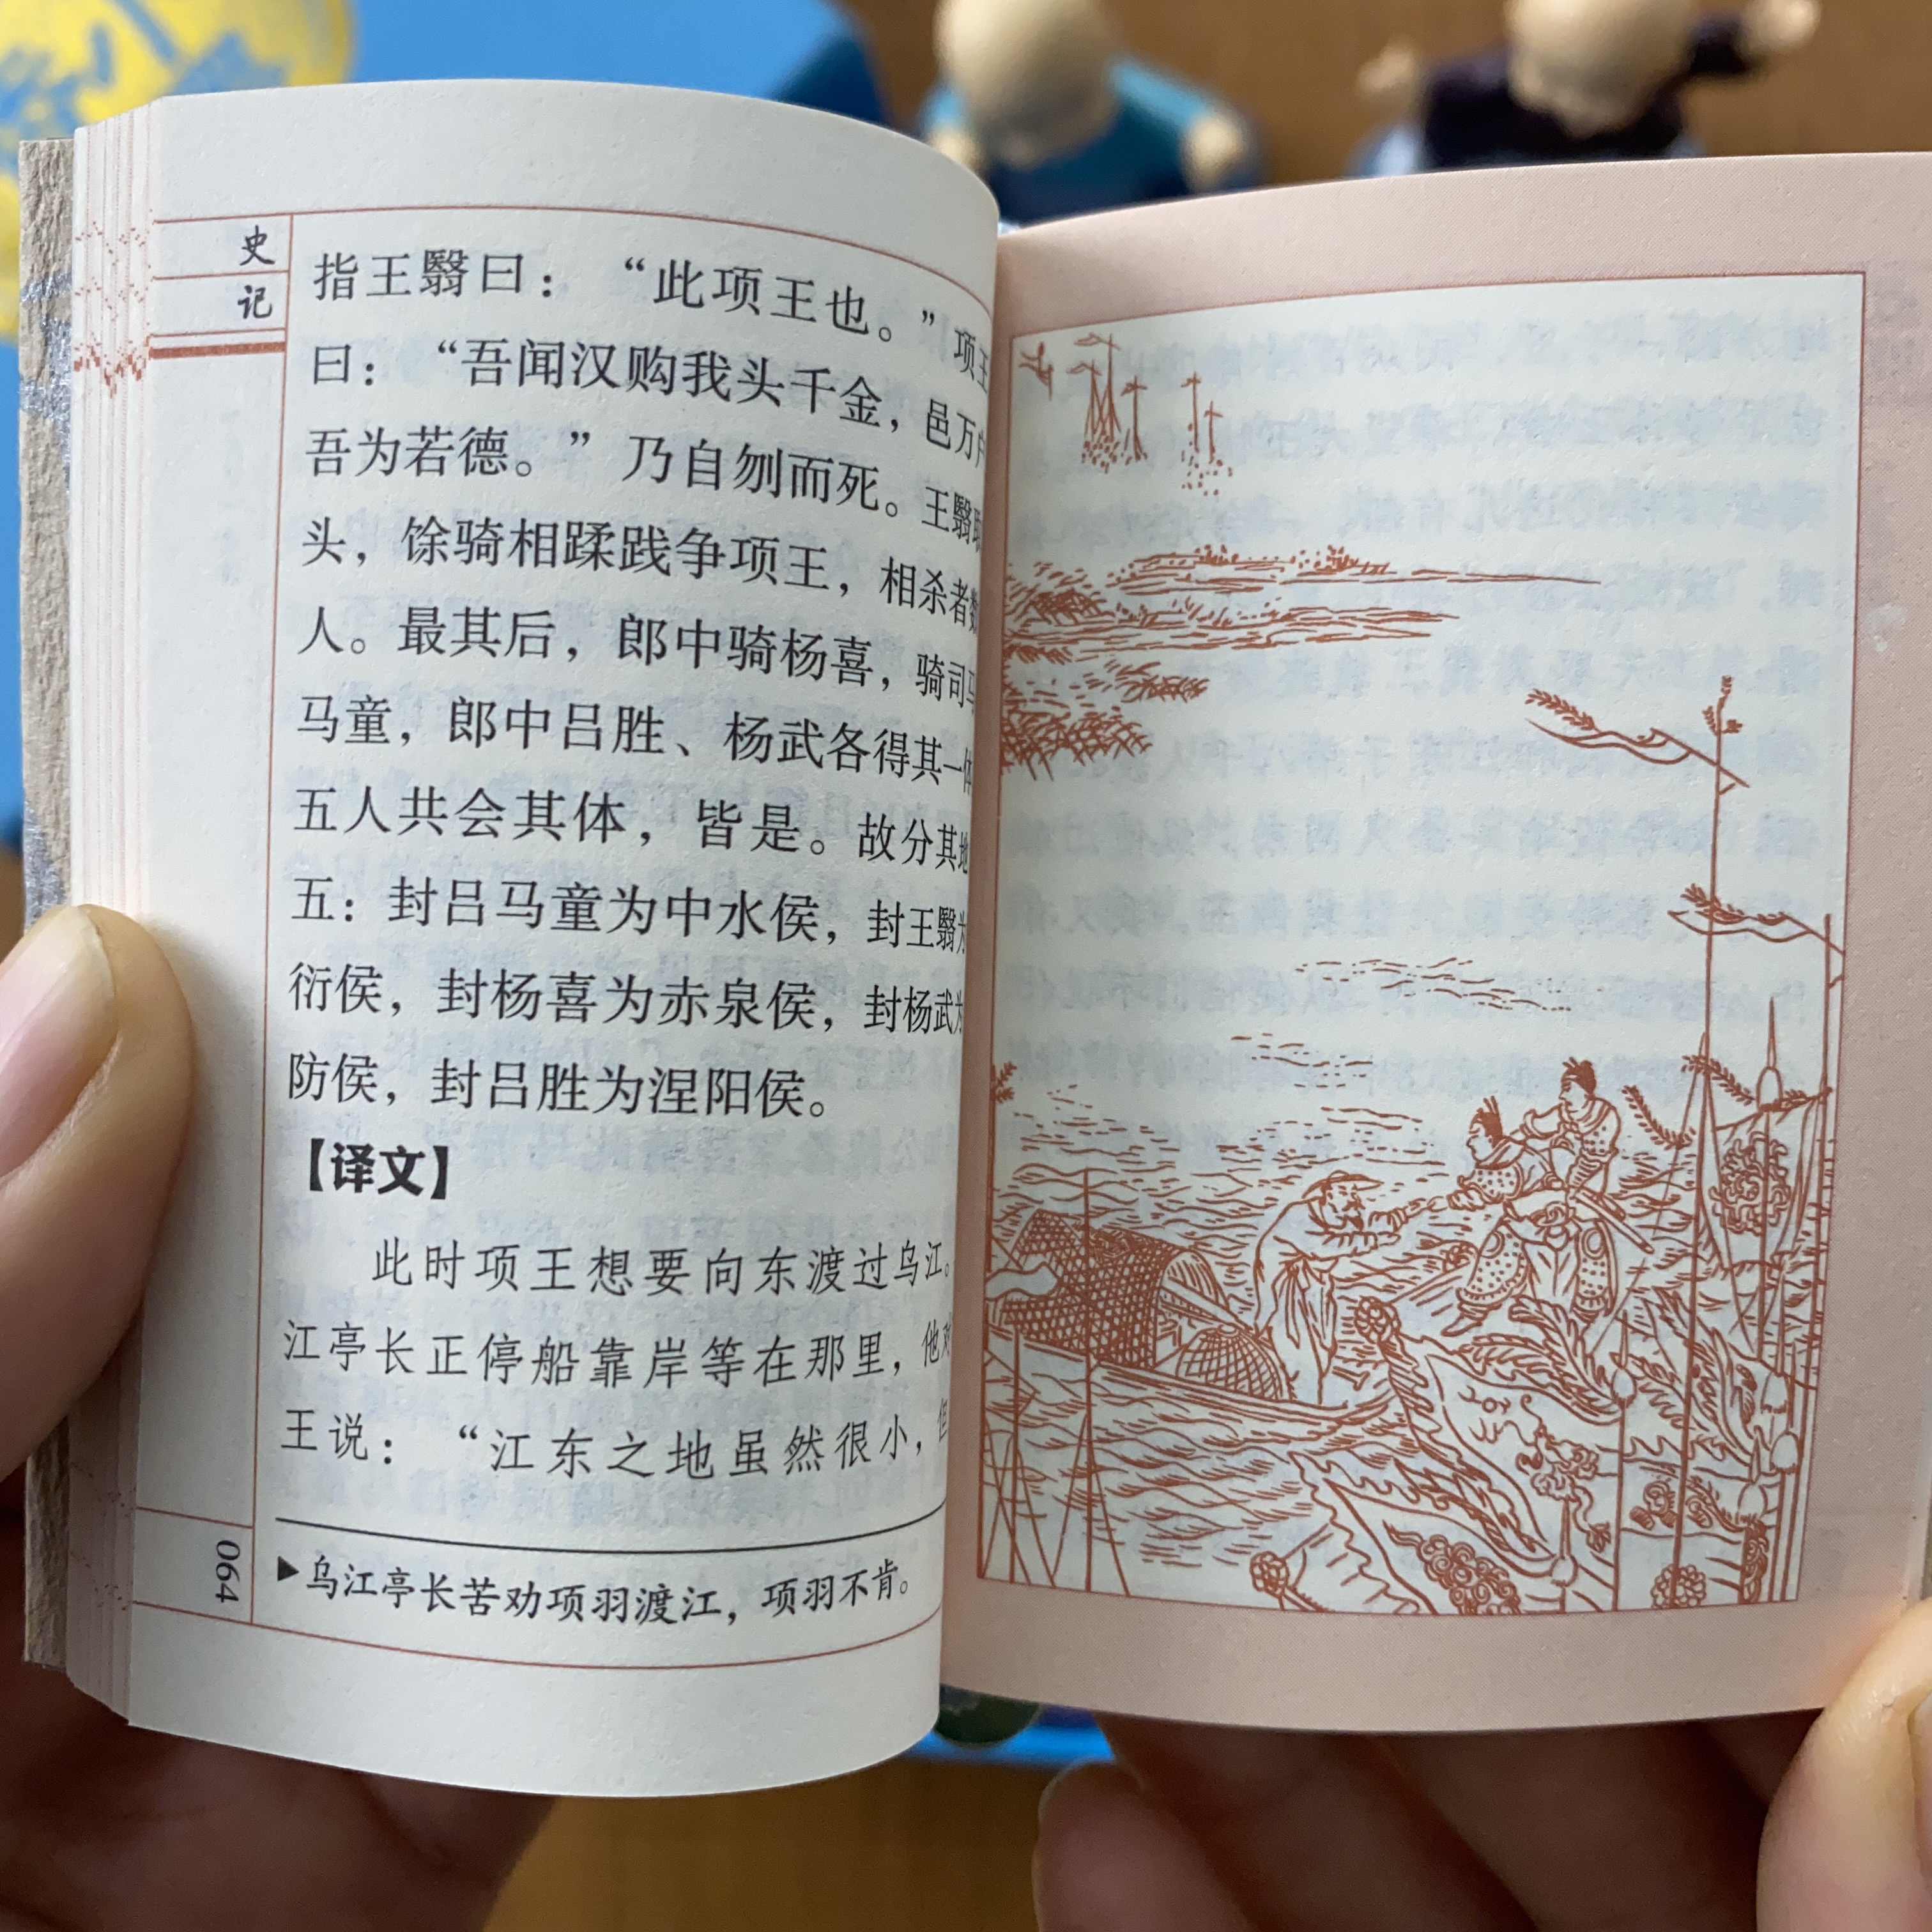 史
记
指王翳曰：“此项王也。”项王
曰：“吾闻汉购我头千金，邑万户
吾为若德。”乃自刎而死。王翳取
头，馀骑相蹂践争项王，相杀者数
人。最其后，郎中骑杨喜，骑司马
马童，郎中吕胜、杨武各得其一体
五人共会其体，皆是。故分其地
五：封吕马童为中水侯，封王翳为
衍侯，封杨喜为赤泉侯，封杨武为
防侯，封吕胜为涅阳侯。
【译文】
此时项王想要向东渡过乌江。
江亭长正停船靠岸等在那里，他对
王说：“江东之地虽然很小，但
▶乌江亭长苦劝项羽渡江，项羽不肯。
064